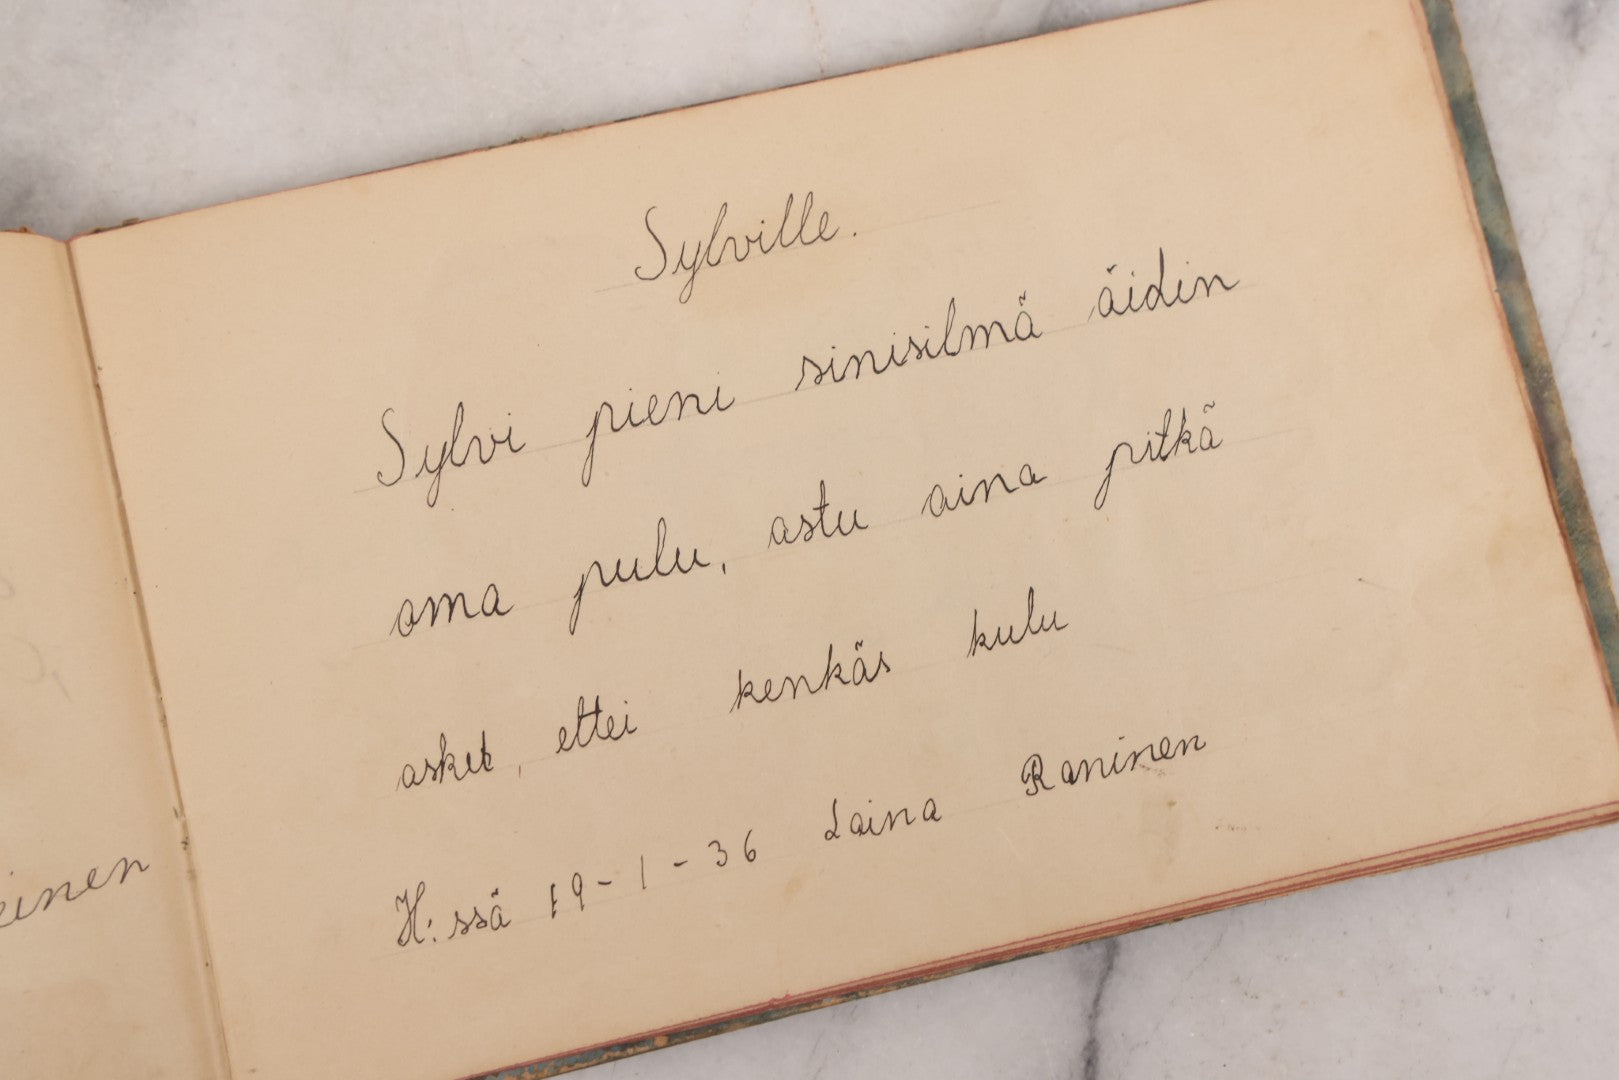 Sylville.
Sylvi pieni sinisilmä äidin
oma pulu, astu aina pitkä
askel, ettei kenkäs kulu
H:ssä 19-1-36 Laina Raninen